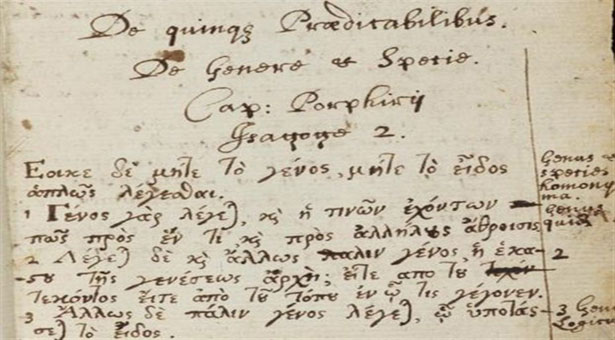 De quinqȝ Prædicabilibus.
De Genere & Specie.
Cap: Porphirij
Isagoge 2.
Εοικε δὲ μήτε τὸ γένος, μήτε τὸ εἶδος
ἁπλῶς λέγεσθαι.
1 Γένος γὰρ λέγε), ϗ ἡ τινῶν ἐχόντων
πως πρὸς ἕν τι ϗ πρὸς ἀλλήλȣς ἄθροισις
2 Λέγε) δὲ ϗ ἄλλως πάλιν γένος, ἡ ἑκά-
ϛȣ τῆς γενέσεως ἀρχὴ; εἴτε απο τȣ
τεκόντος εἴτε ἀπὸ τȣ͂ τόπȣ ἐν ᾧ τις γέγονεν.
3 Ἄλλως δὲ πάλιν γένος λέγε), ᾧ ὑποτάσ-
σε) τὸ εἶδος.
Genus &
species
homony
ma.
Genus
quid
2
3 Genu
Logicu